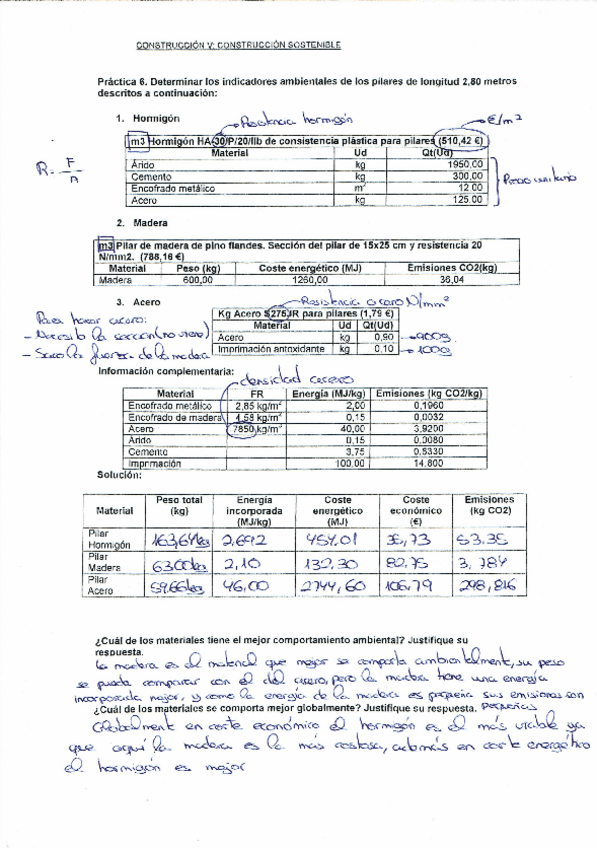 CONSTRUCCIÓN V: CONSTRUCCIÓN SOSTENIBLE
Práctica 6. Determinar los indicadores ambientales de los pilares de longitud 2,80 metros
descritos a continuación:
1. Hormigón
Resistencia hormigón
€/m²
m3 Hormigón HA-30/P/20/IIb de consistencia plástica para pilares (510,42 €)
Material Ud Qt(Ud)
Árido kg 1950,00
Cemento kg 300,00
Encofrado metálico m² 12,00
Acero kg 125,00
R = F/A
Precio unitario
2. Madera
m3 Pilar de madera de pino flandes. Sección del pilar de 15x25 cm y resistencia 20
N/mm2. (788,16 €)
Material Peso (kg) Coste energético (MJ) Emisiones CO2(kg)
Madera 600,00 1260,00 36,04
3. Acero
Resistencia acero N/mm²
Para hacer acero:
- Necesito la sección (no viene)
- Saco la fuerza de la madera
Kg Acero S275JR para pilares (1,79 €)
Material Ud Qt(Ud)
Acero kg 0,90 → 900g
Imprimación antoxidante kg 0,10 → 100g
Información complementaria:
densidad acero
Material FR Energía (MJ/kg) Emisiones (kg CO2/kg)
Encofrado metálico 2,85 kg/m² 2,00 0,1960
Encofrado de madera 4,58 kg/m² 0,15 0,0032
Acero 7850 kg/m³ 40,00 3,9200
Árido 0,15 0,0080
Cemento 3,75 0,5330
Imprimación 100,00 14,800
Solución:
Material Peso total (kg) Energía incorporada (MJ/kg) Coste energético (MJ) Coste económico (€) Emisiones (kg CO2)
Pilar Hormigón 163,64kg 2,692 454,01 35,73 53,35
Pilar Madera 63,00kg 2,10 132,30 82,75 3,784
Pilar Acero 59,66kg 46,00 2744,60 106,79 298,816
¿Cuál de los materiales tiene el mejor comportamiento ambiental? Justifique su
respuesta.
La madera es el material que mejor se comporta ambientalmente, su peso
se puede comparar con el del acero, pero la madera tiene una energía
incorporada mejor, y como la energía de la madera es pequeña sus emisiones son
pequeñas
¿Cuál de los materiales se comporta mejor globalmente? Justifique su respuesta.
Globalmente en coste económico el hormigón es el más viable ya
que aquí la madera es la más costosa, además en coste energético
el hormigón es mejor